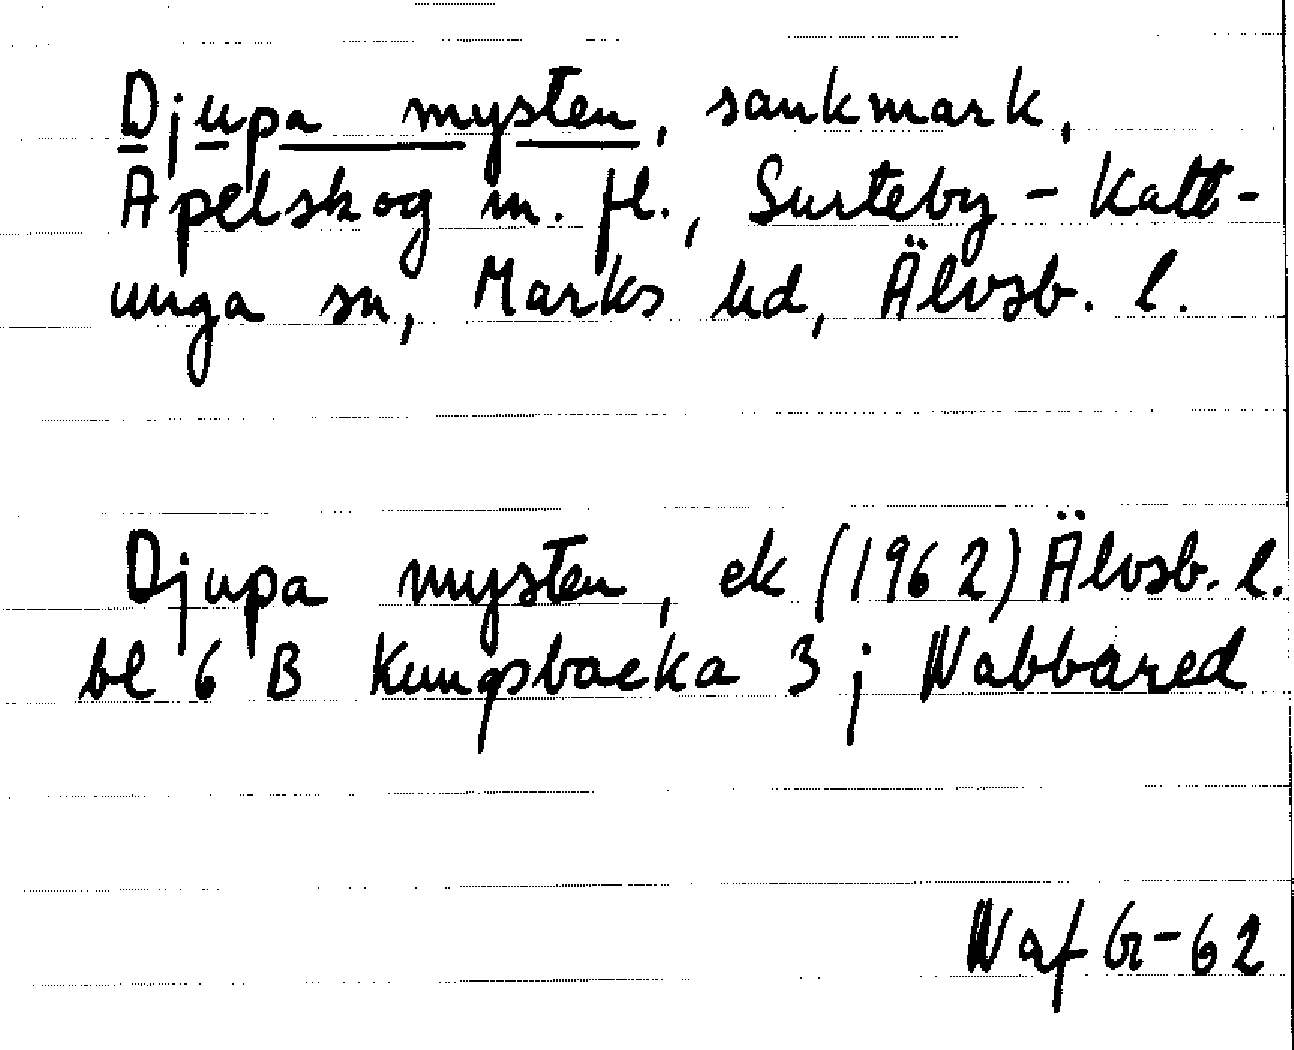 Djupa mysten, sankmark,
Apelskog m. fl., Surteby-Katt-
unga sn, Marks hd, Älvsb. l.
Djupa mysten, ek (1962) Älvsb. l.
bl 6 B Kungsbacka 3 ; Nabbared
N af Gr-62